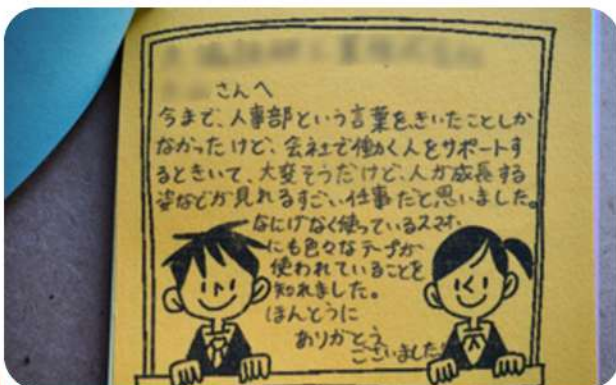 さんへ
今まで、人事部という言葉をきいたことしか
なかったけど、会社で働く人をサポートす
るときいて、大変そうだけど、人が成長する
姿などが見れるすごい仕事だと思いました。
なにげなく使っているスマホ
にも色々なテープが
使われていることを
知れました。
ほんとうに
ありがとう
ございました!